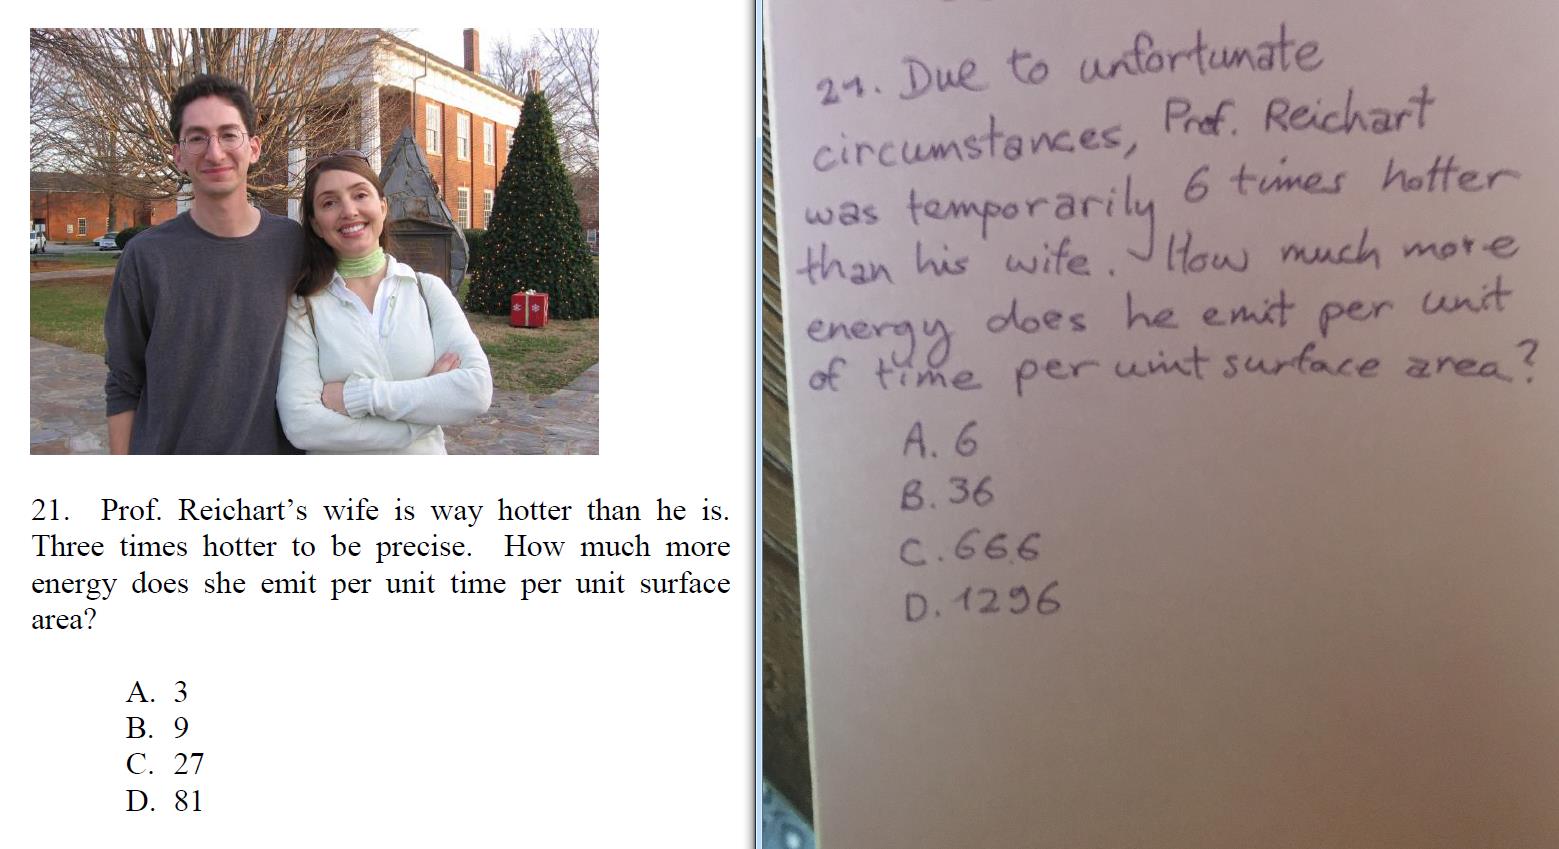 21. Prof. Reichart's wife is way hotter than he is.
Three times hotter to be precise. How much more
energy does she emit per unit time per unit surface
area?
A. 3
B. 9
C. 27
D. 81
21. Due to unfortunate
circumstances, Prof. Reichart
was temporarily 6 times hotter
than his wife. How much more
energy does he emit per unit
of time per unit surface area?
A. 6
B. 36
C. 666
D. 1296